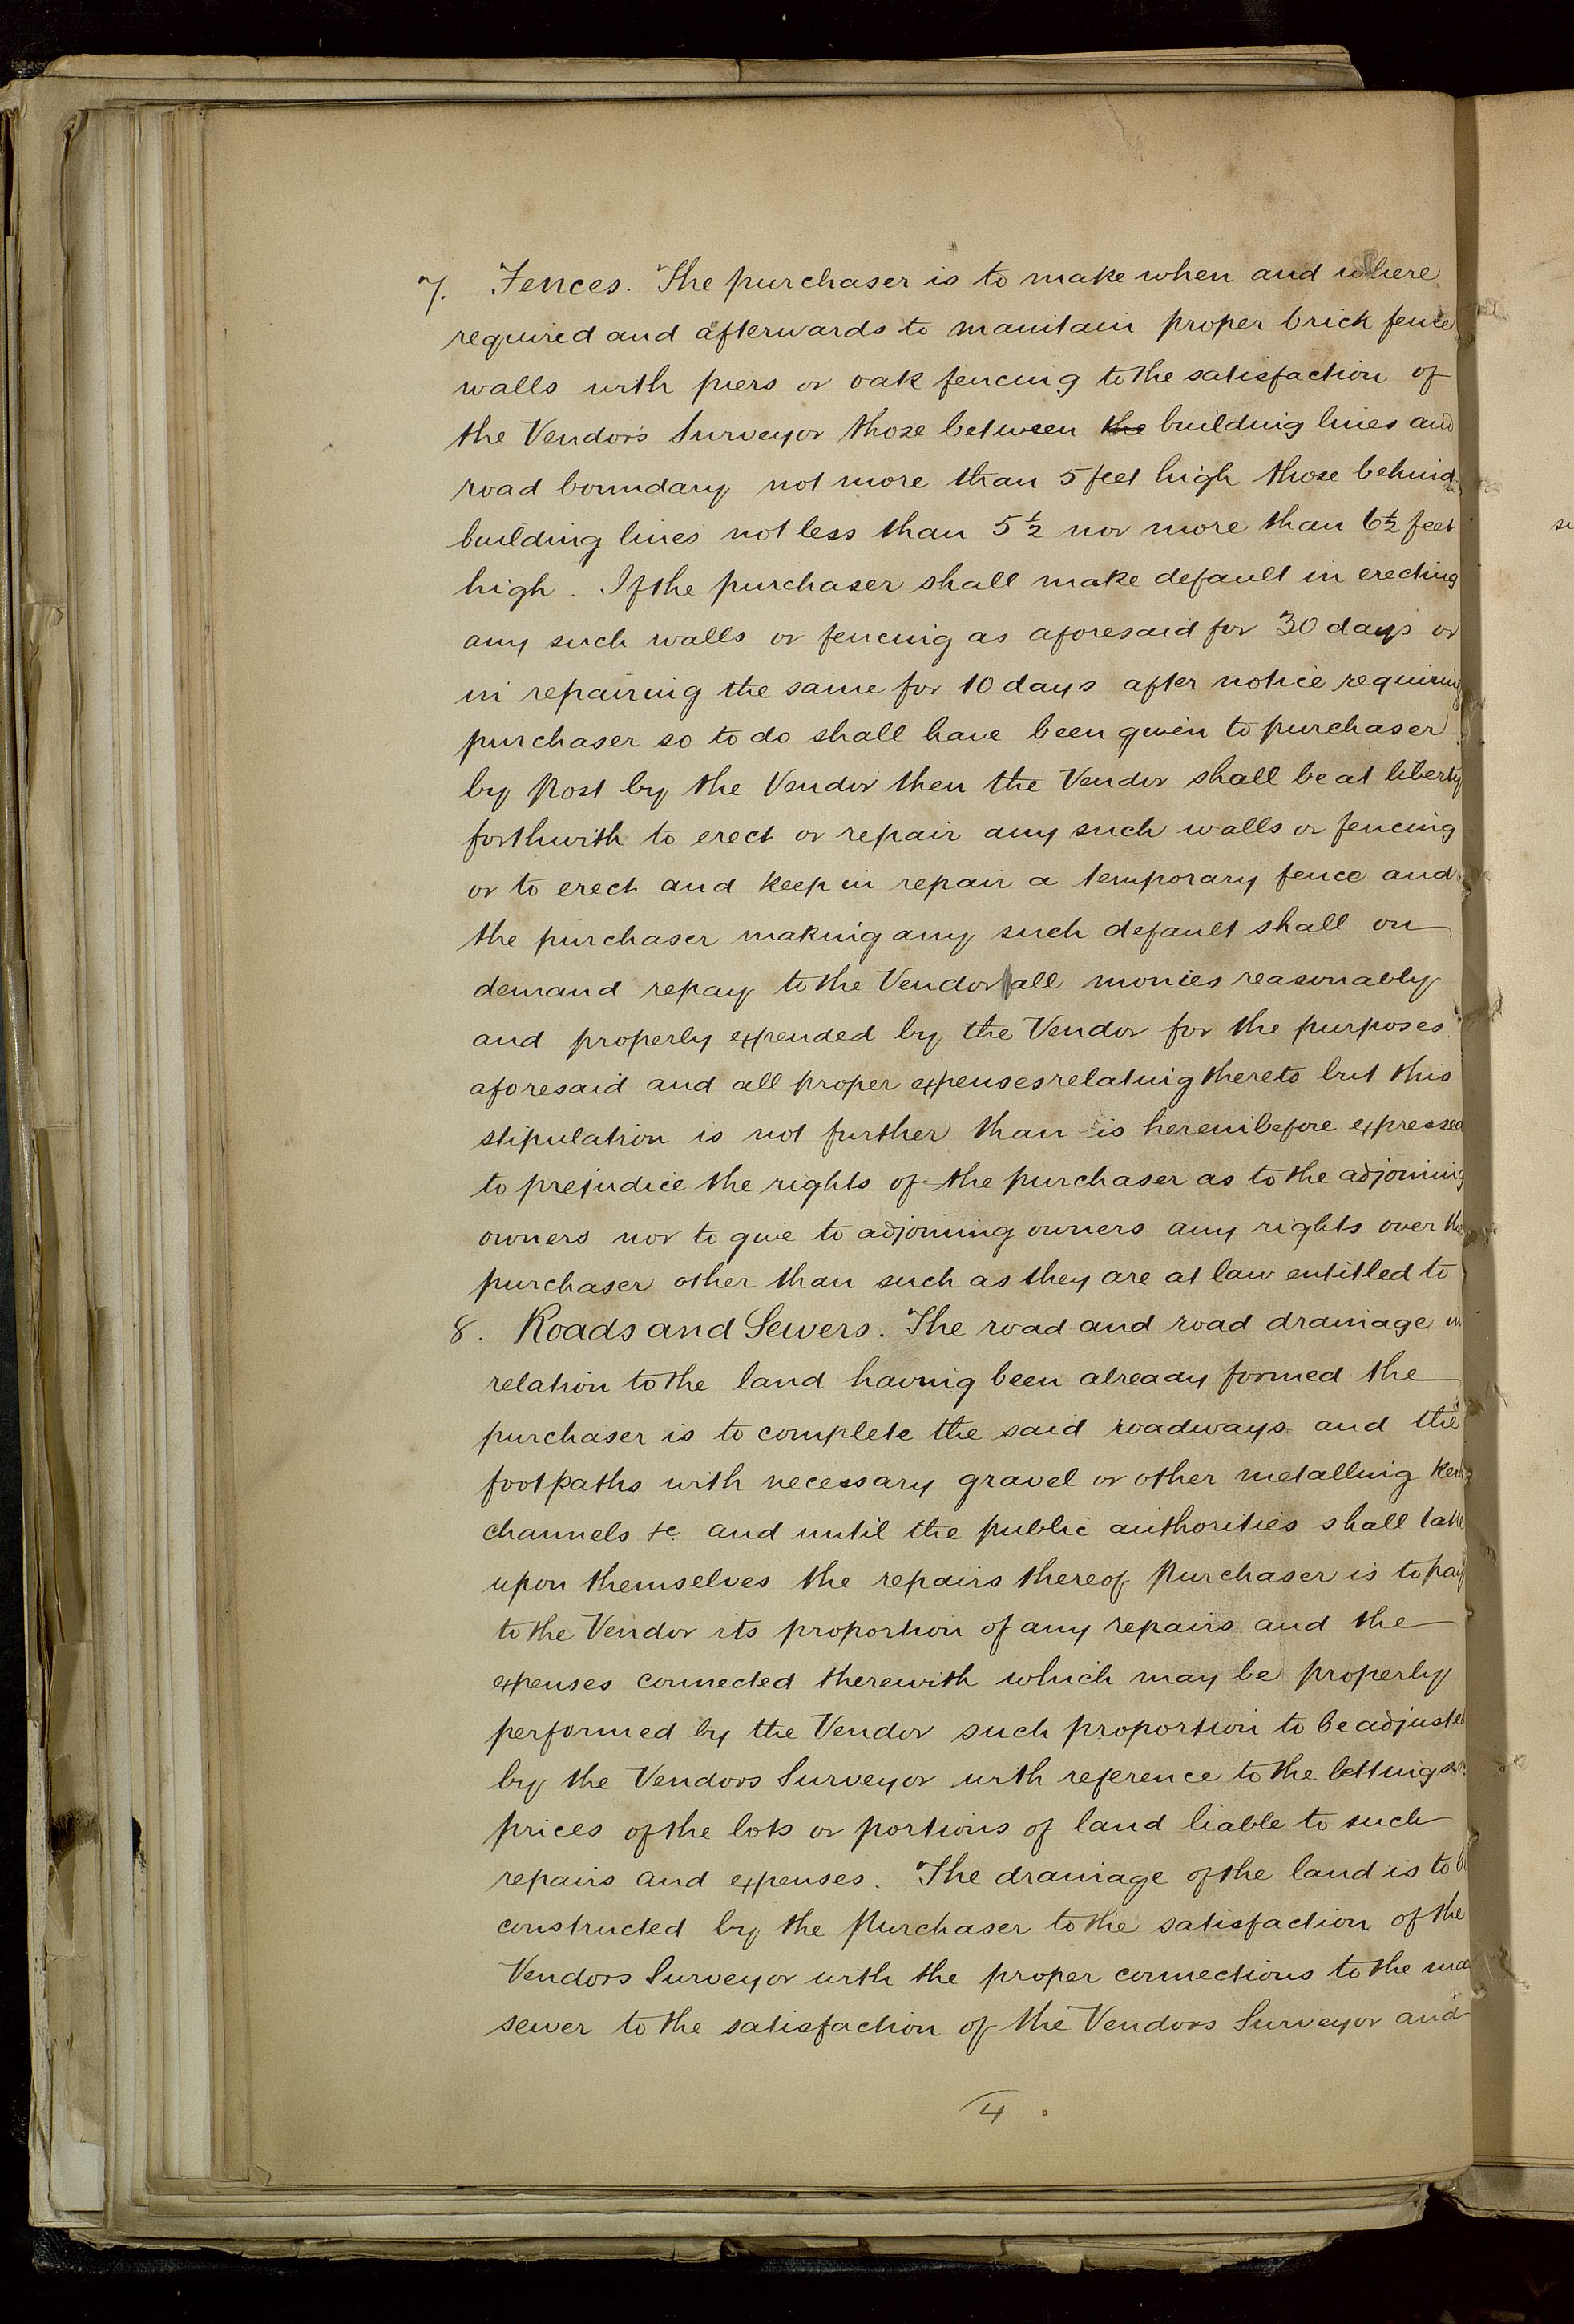 7. Fences. The purchaser is to make when and where
required and afterwards to maintain proper brick fence
walls with piers or oak fencing to the satisfaction of
the Vendor's Surveyor those between the building lines and
road boundary not more than 5 feet high those behind
building lines not less than 5½ nor more than 6½ feet
high. If the purchaser shall make default in erecting
any such walls or fencing as aforesaid for 30 days or
in repairing the same for 10 days after notice requiring
purchaser so to do shall have been given to purchaser
by Post by the Vendor then the Vendor shall be at liberty
forthwith to erect or repair any such walls or fencing
or to erect and keep in repair a temporary fence and
the purchaser making any such default shall on
demand repay to the Vendor all monies reasonably
and properly expended by the Vendor for the purposes
aforesaid and all proper expenses relating thereto but this
stipulation is not further than is hereinbefore expressed
to prejudice the rights of the purchaser as to the adjoining
owners nor to give to adjoining owners any rights over the
purchaser other than such as they are at law entitled to
8. Roads and Sewers. The road and road drainage in
relation to the land having been already formed the
purchaser is to complete the said roadways and the
footpaths with necessary gravel or other metalling
channels &c and until the public authorities shall take
upon themselves the repairs thereof Purchaser is to pay
to the Vendor its proportion of any repairs and the
expenses connected therewith which may be properly
performed by the Vendor such proportion to be adjusted
by the Vendors Surveyor with reference to the letting
prices of the lots or portions of land liable to such
repairs and expenses. The drainage of the land is to
constructed by the Purchaser to the satisfaction of the
Vendors Surveyor with the proper connections to the
sewer to the satisfaction of the Vendors Surveyor and
4